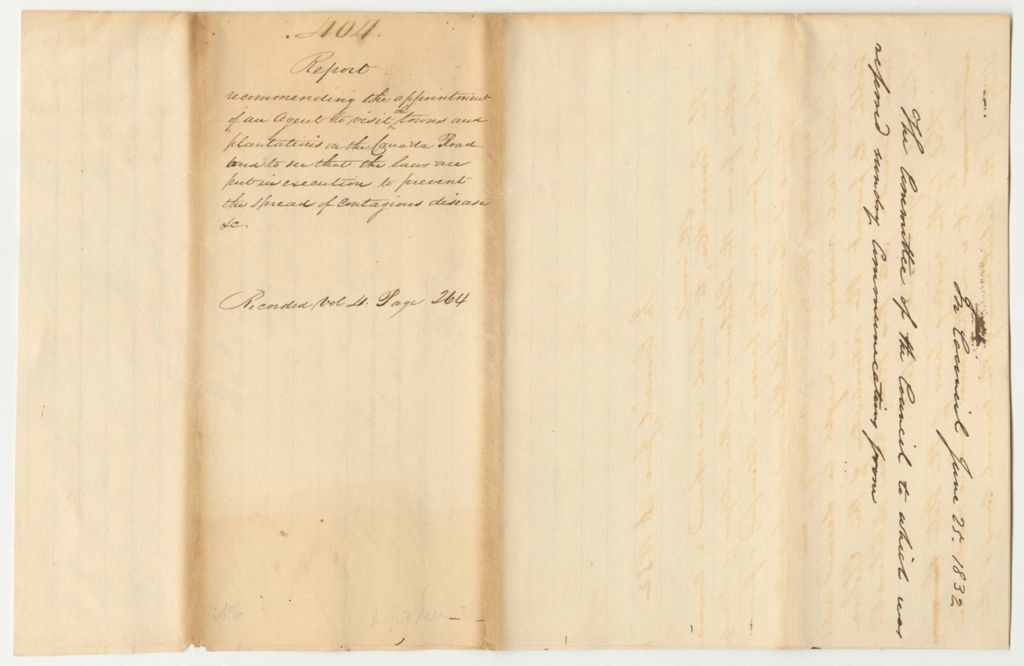 404.
Report
recommending the appointment
of an Agent to visit the towns and
plantations on the Canada Road
and to see that the laws are
put in execution to prevent
the spread of contagious disease
&c.
Recorded Vol 4. Page 264
In Council June 25. 1832
The Committee of the Council to which was
referred sundry Communications from